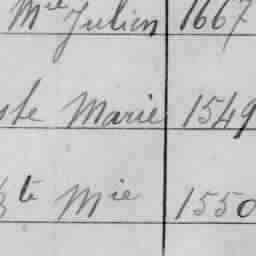 Mel Julien 1667
ste Marie 1549
te Mie 1550